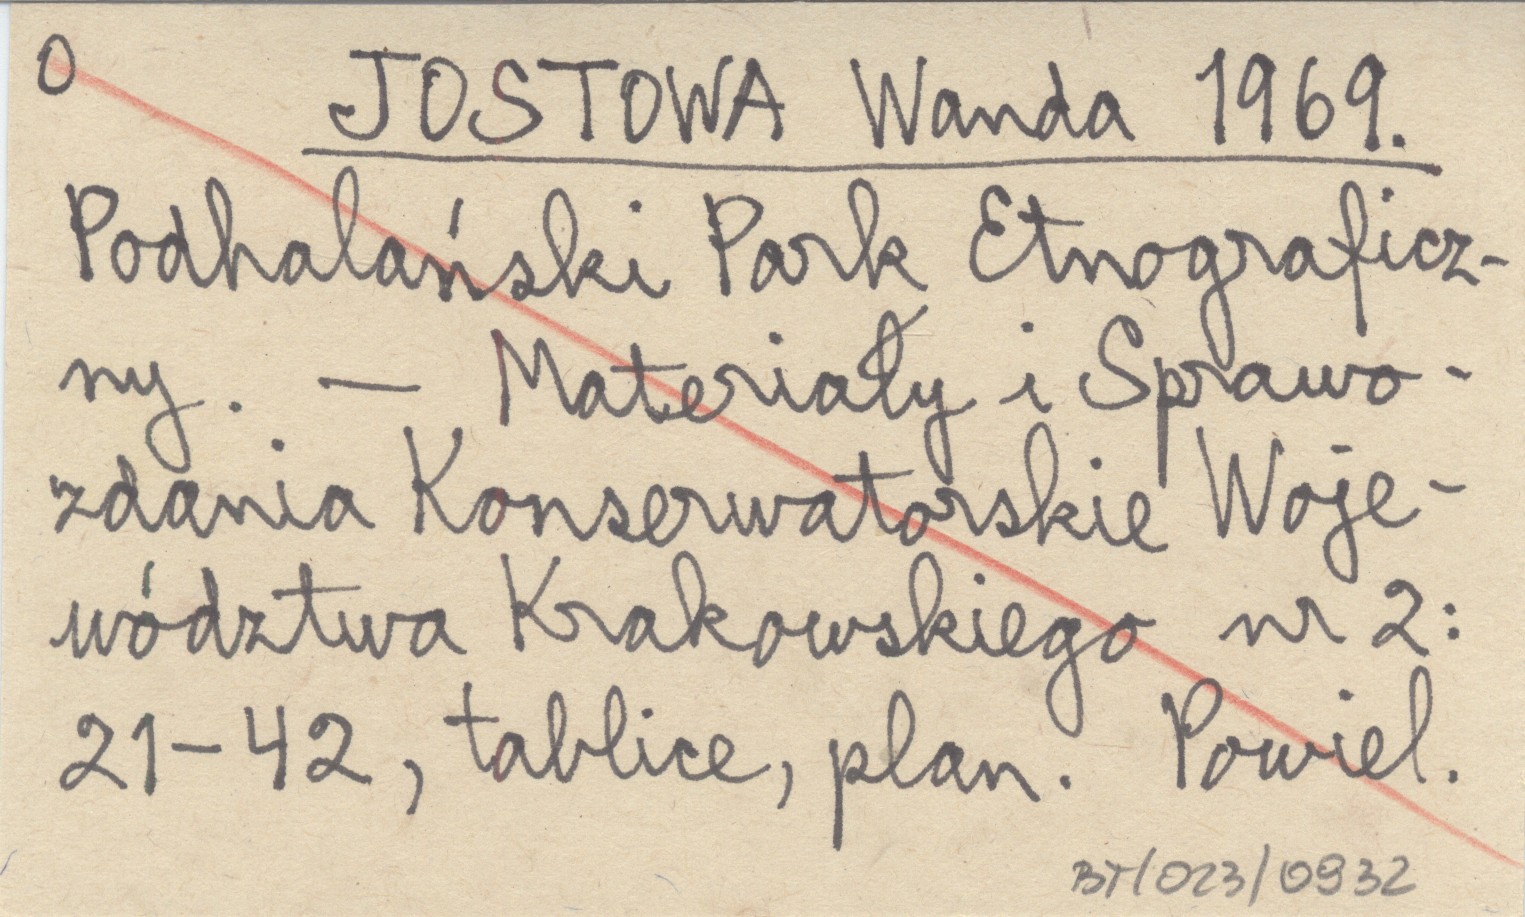 0 JOSTOWA Wanda 1969.
Podhalański Park Etnograficz-
ny. — Materiały i Sprawo-
zdania Konserwatorskie Woje-
wództwa Krakowskiego nr 2:
21-42, tablice, plan. Powiel.
BT/023/0932